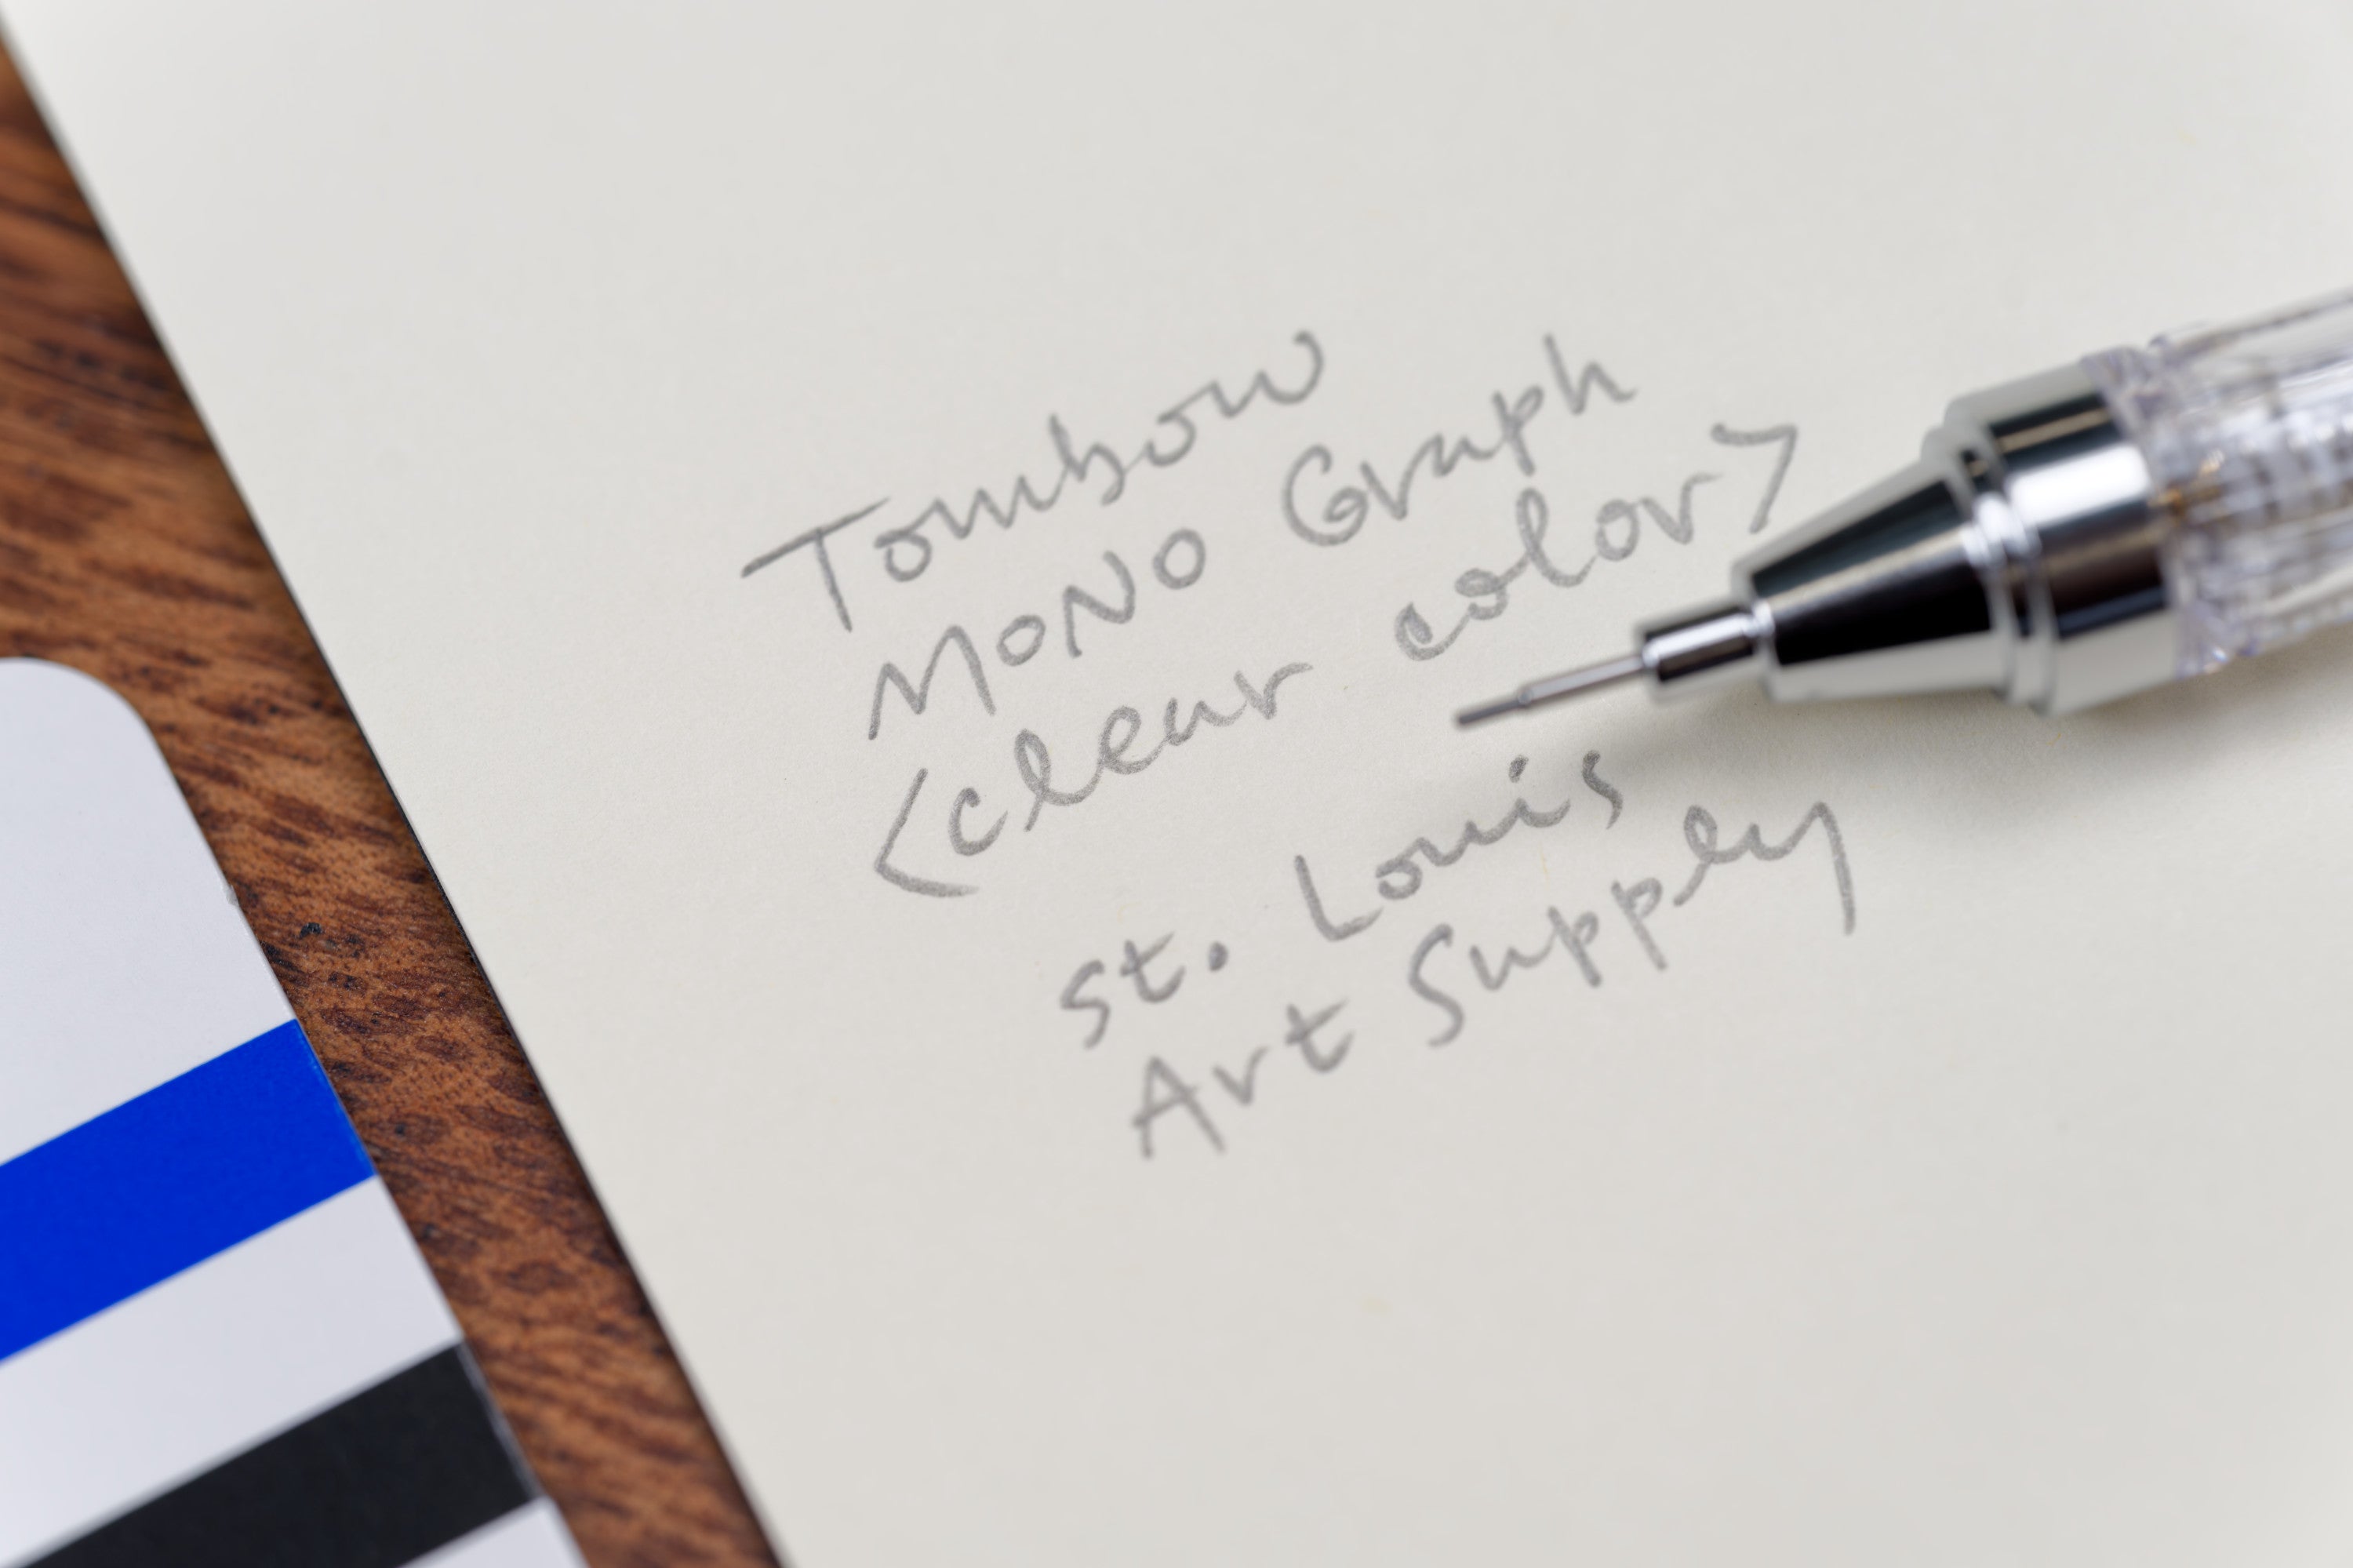 Tombow
MONO Graph
<clear color>
St. Louis
Art Supply